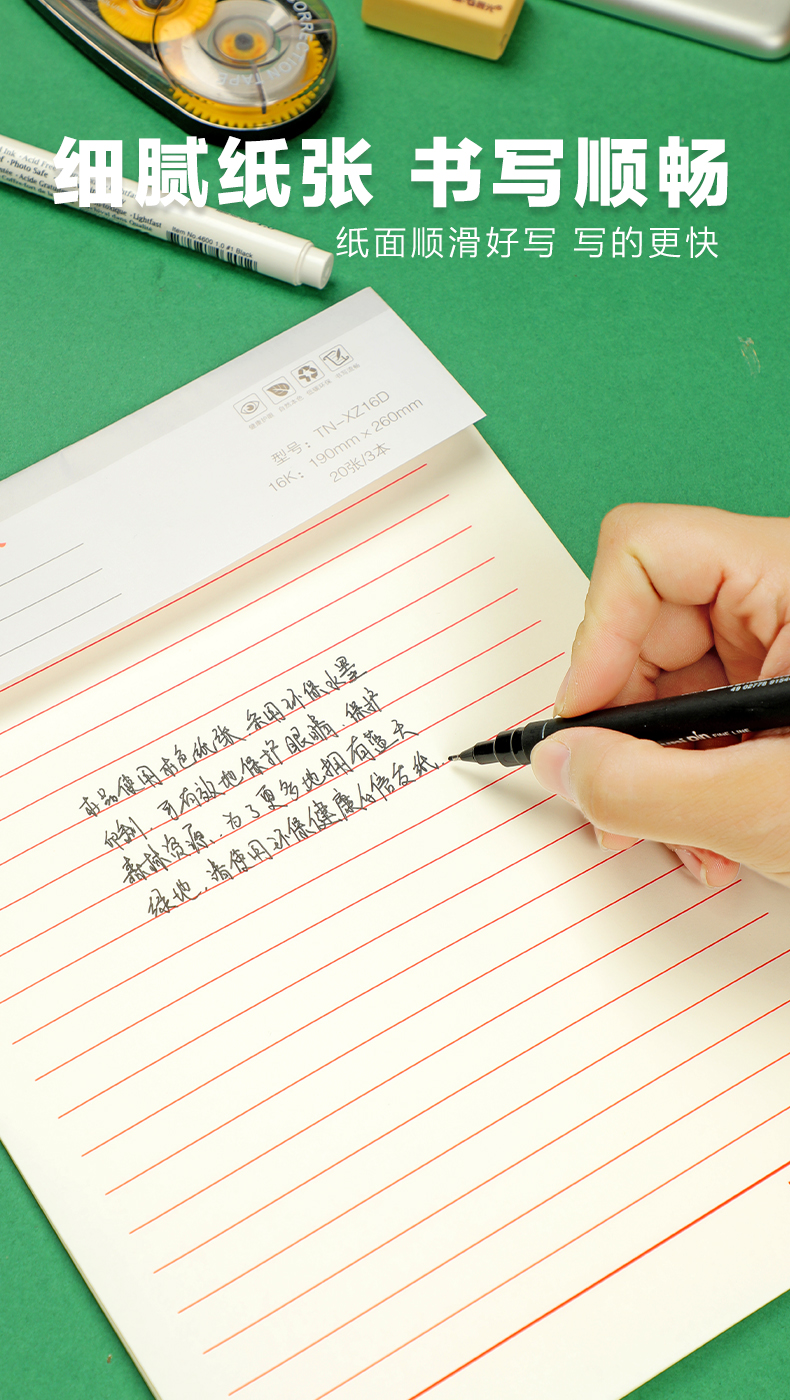 CORRECTION TAPE
细腻纸张 书写顺畅
纸面顺滑好写 写的更快
Item No.4600 1.0 #1 Black
型号：TN-XZ16D
16K：190mm×260mm
20张/3本
本品使用本色纸张，采用环保水墨
印刷，可有效地保护眼睛，保护
森林资源，为了更多地拥有蓝天
绿地，请使用环保健康的信台纸.
FINE LINE